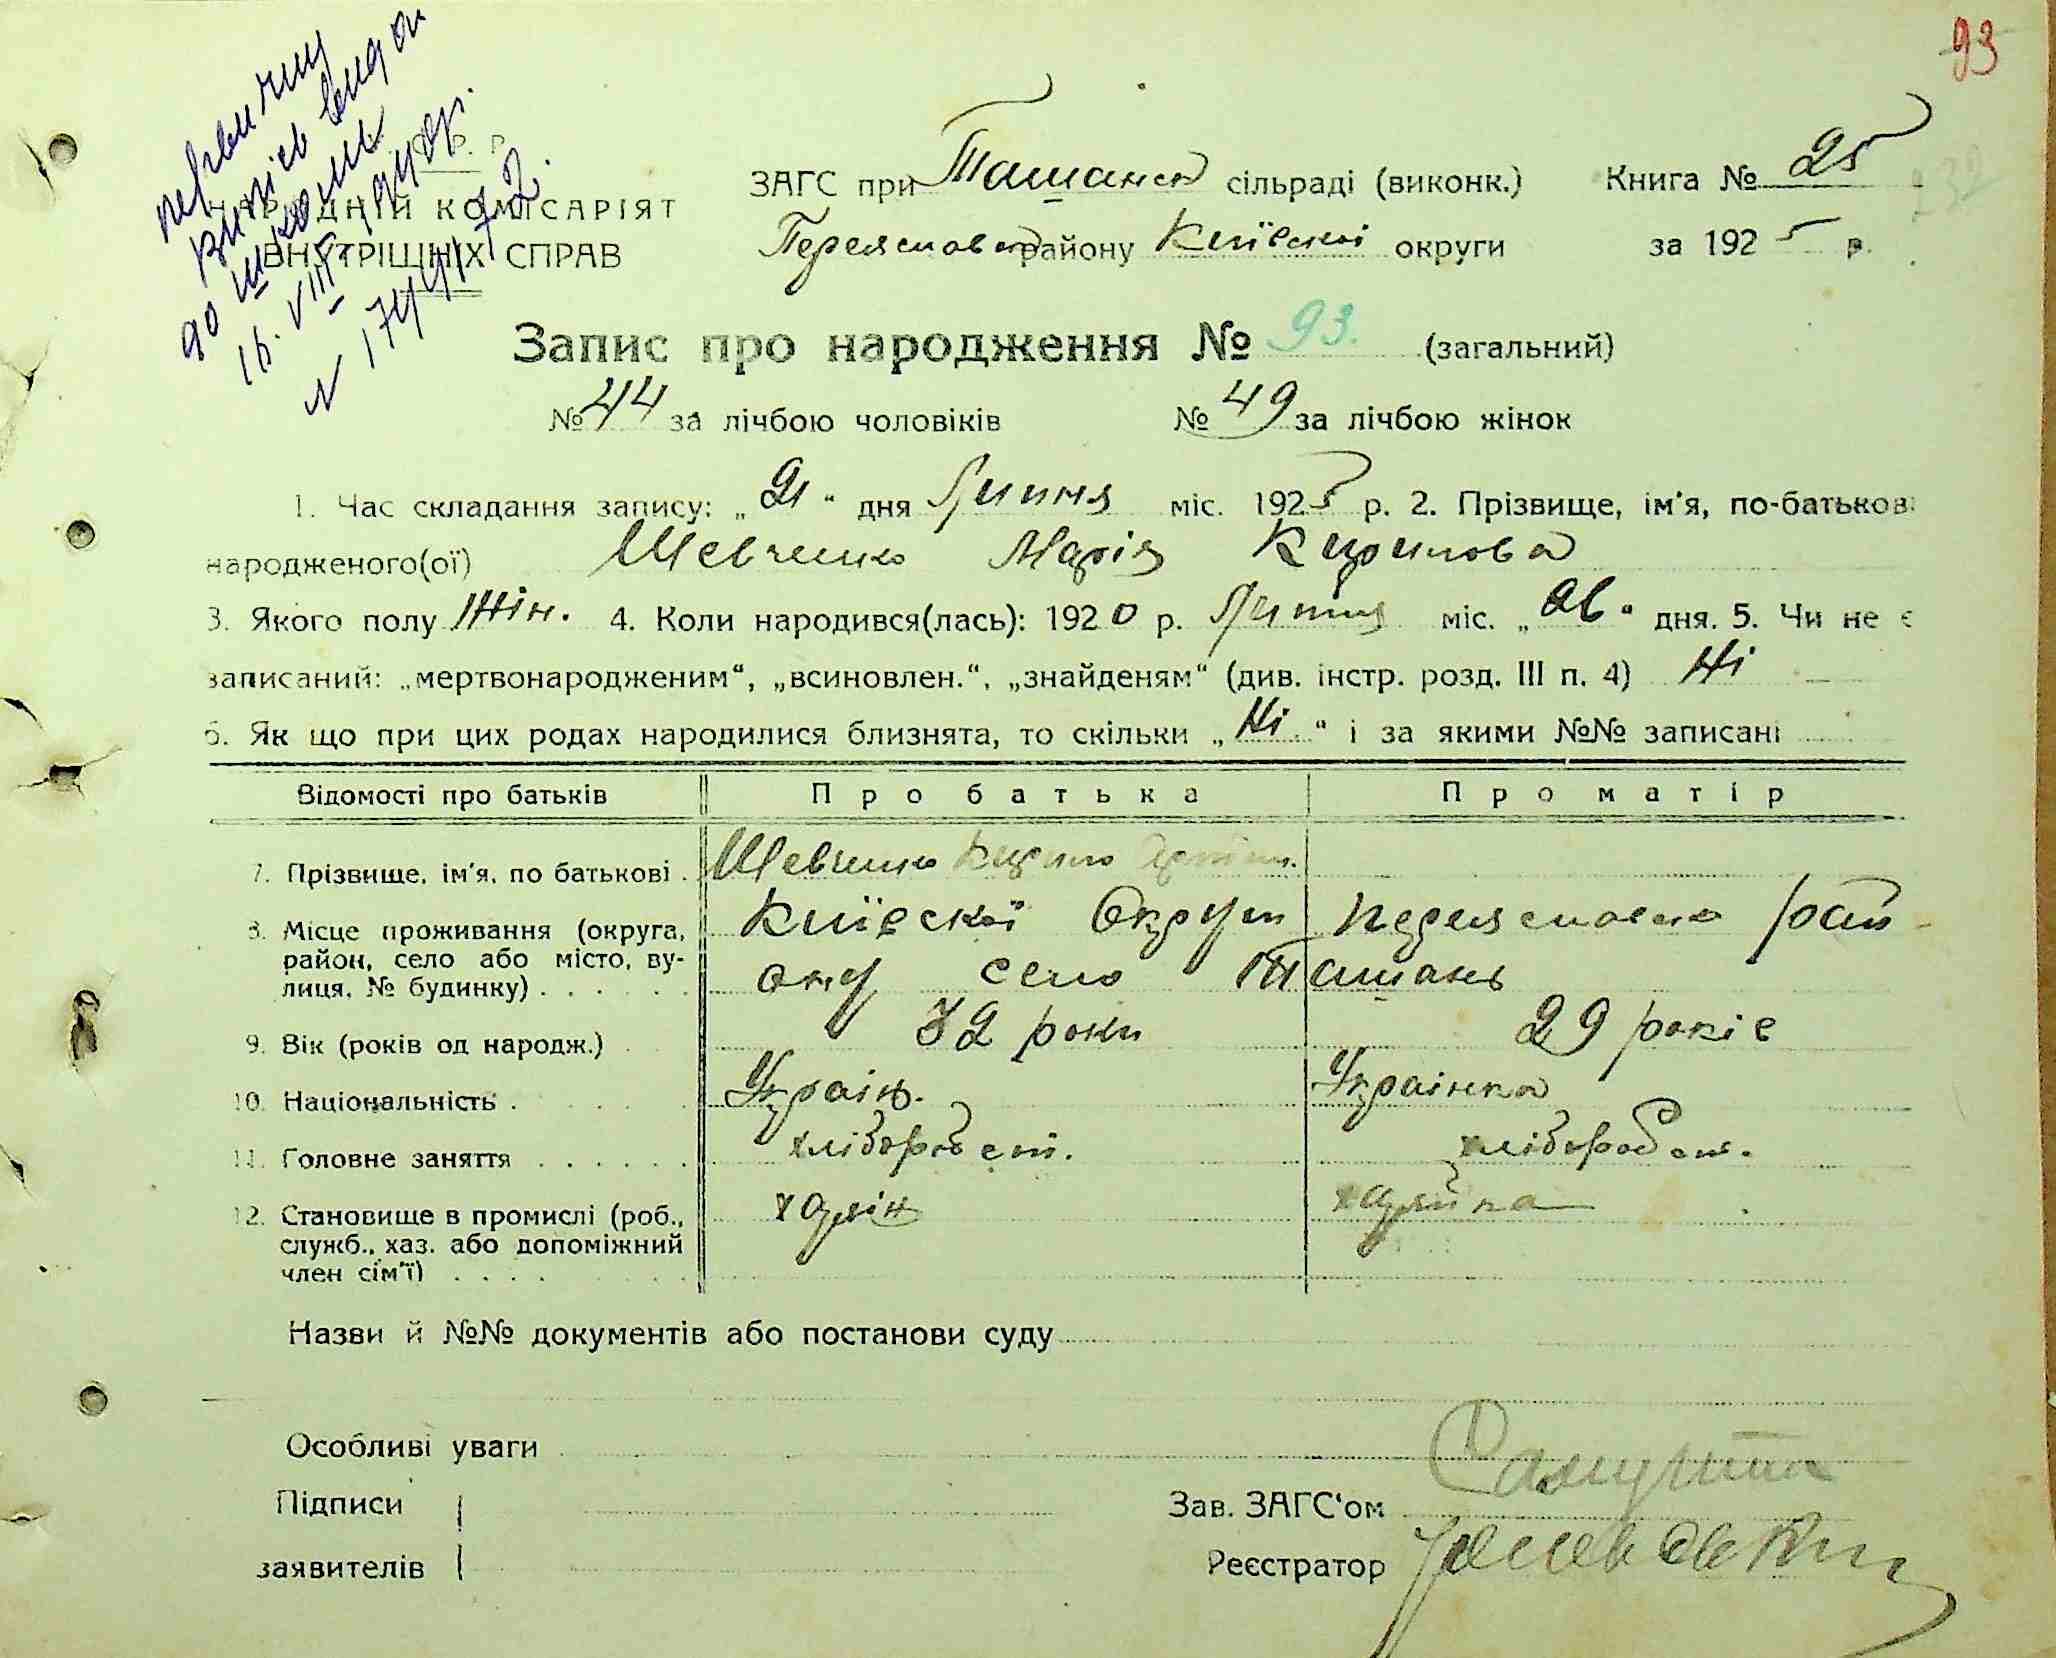 93
первичну
випись видан
до школи
16. VIII
Р.
НАРОДНІЙ КОМІСАРІЯТ
ВНУТРІШНІХ СПРАВ
ЗАГС при Ташанск сільраді (виконк.) Книга № 25
232
Переяславс району Київскої округи за 1925 р.
Запис про народження № 93. (загальний)
№ 44 за лічбою чоловіків № 49 за лічбою жінок
1. Час складання запису: „21“ дня Липня міс. 1925 р. 2. Прізвище, ім'я, по-батькові
народженого(ої) Шевченко Марія Кирилова
3. Якого полу Жін. 4. Коли народився(лась): 1920 р. міс. „ “ дня. 5. Чи не є
записаний: „мертвонародженим“, „всиновлен.“, „знайденям“ (див. інстр. розд. III п. 4) Ні
6. Як що при цих родах народилися близнята, то скільки „Ні“ і за якими №№ записані
Відомості про батьків Про батька Про матір
7. Прізвище, ім'я, по батькові . Шевченко Кирило
8. Місце проживання (округа, район, село або місто, вулиця, № будинку) . . . . . Київскої Округи Переяславско рай
ону село Ташань
9. Вік (років од народж.) 32 роки 29 років
10. Національність . Україн. Українка
11. Головне заняття . . . . . . хлібороб ст. хлібороб ст.
12. Становище в промислі (роб., служб., хаз. або допоміжний член сім'ї) . . . . хазяін хазяйка
Назви й №№ документів або постанови суду
Особливі уваги
Підписи
заявителів
Зав. ЗАГС'ом
Реєстратор